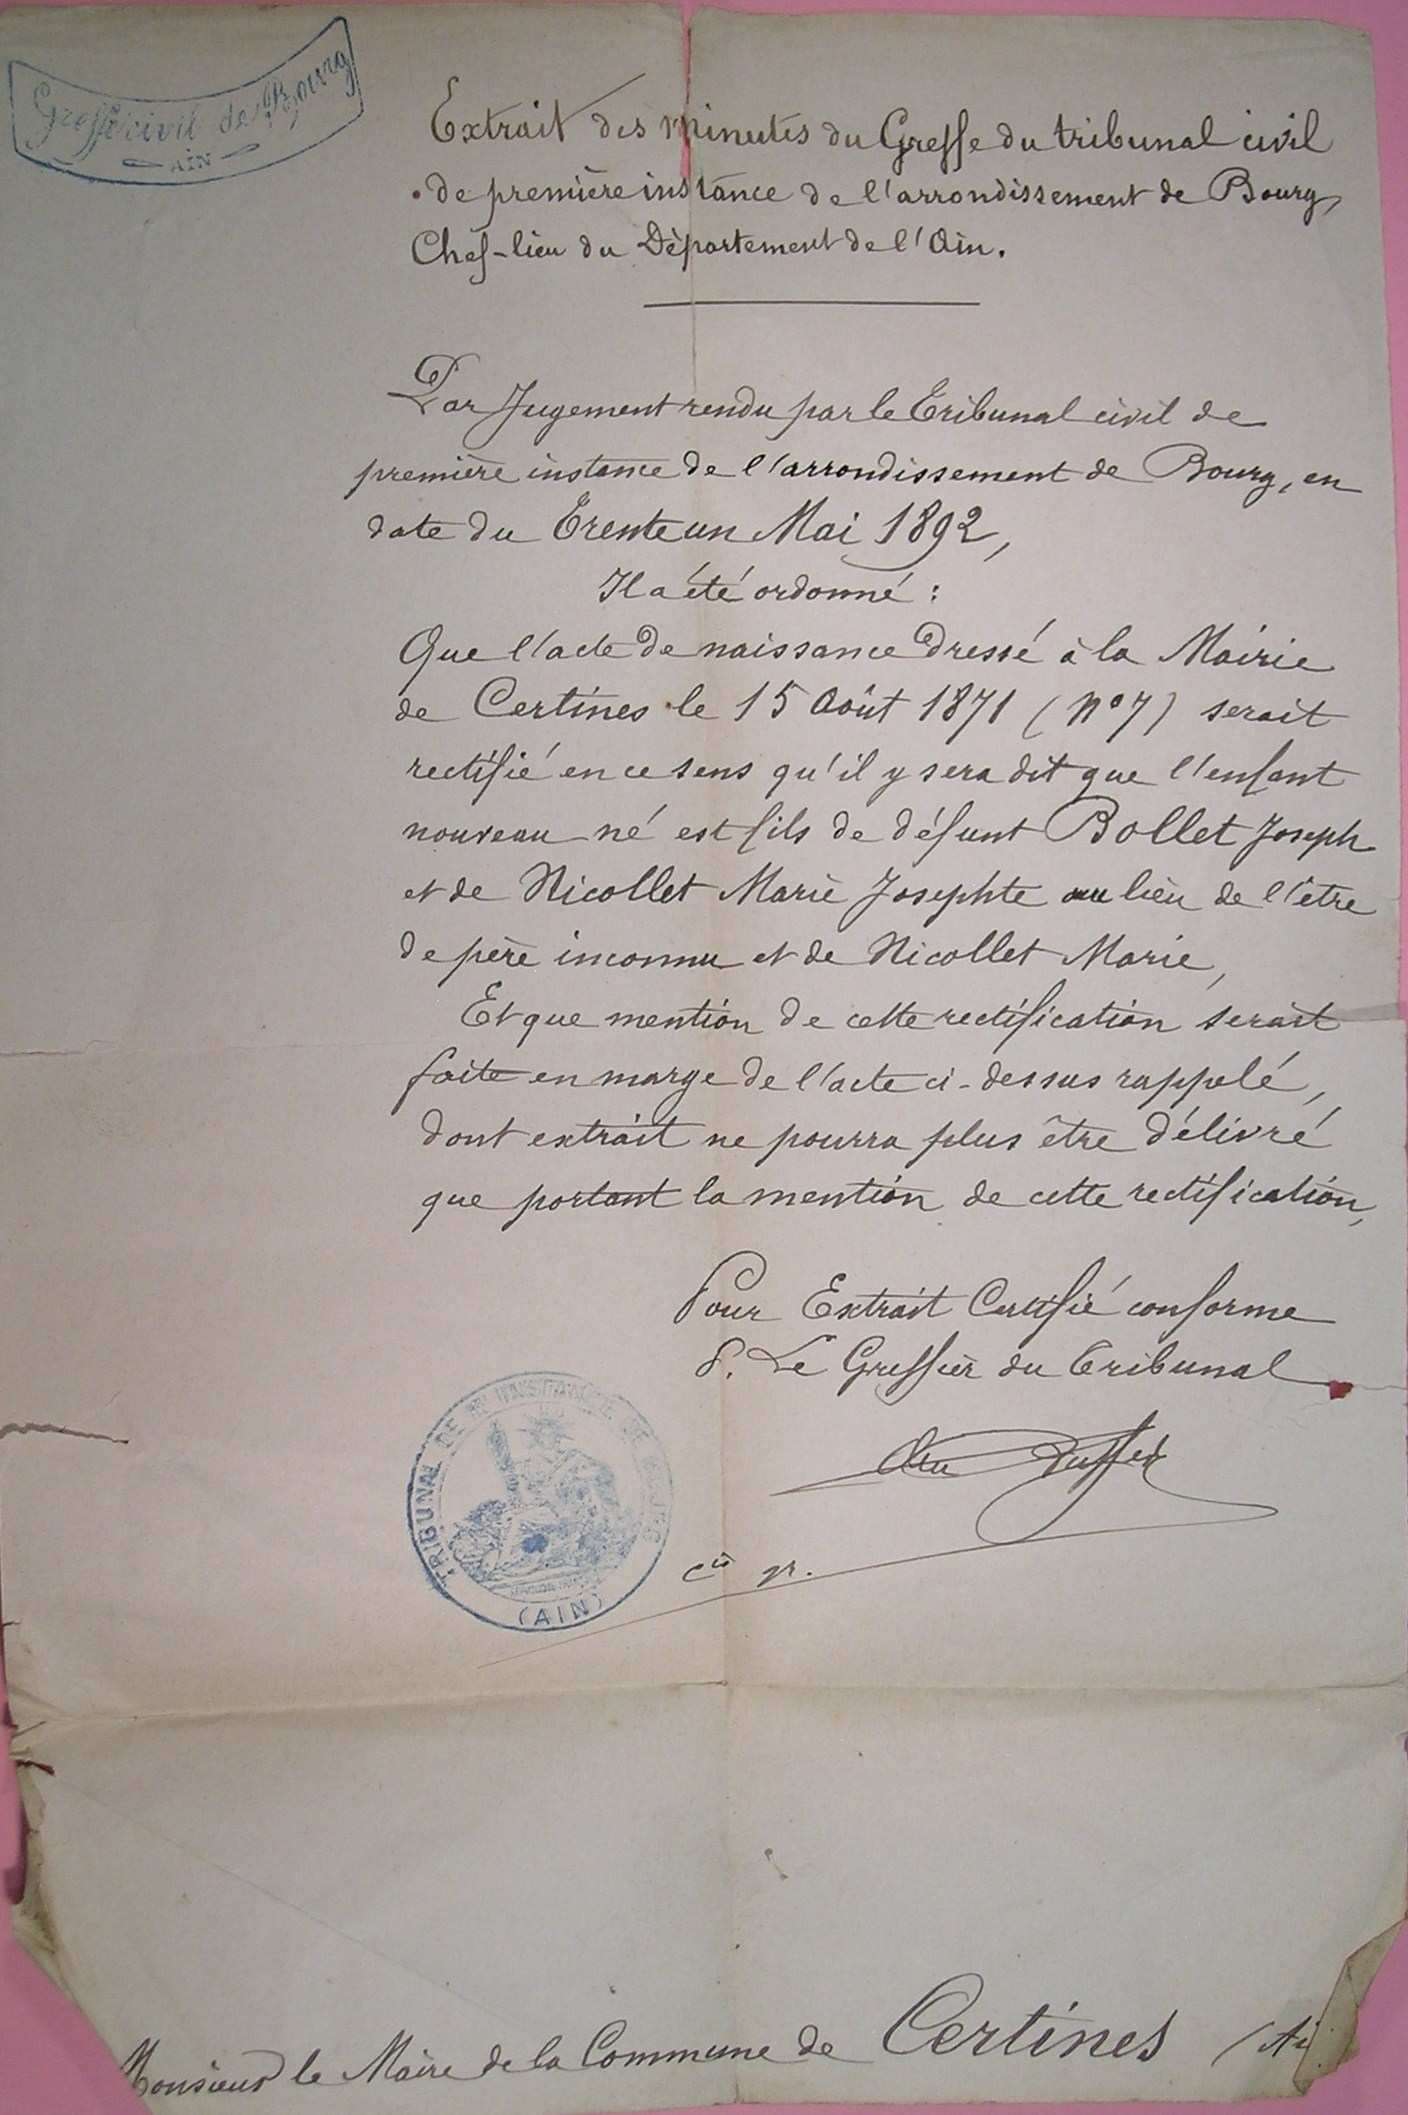 Greffe civil de Bourg
AIN
Extrait des minutes du Greffe du tribunal civil
de première instance de l'arrondissement de Bourg,
Chef-lieu du Département de l'Ain.
Par Jugement rendu par le Tribunal civil de
première instance de l'arrondissement de Bourg, en
date du Trente un Mai 1892,
Il a été ordonné :
Que l'acte de naissance dressé à la Mairie
de Certines le 15 Août 1871 (N° 7) serait
rectifié en ce sens qu'il y sera dit que l'enfant
nouveau-né est fils de défunt Bollet Joseph
et de Nicollet Marie Josephte au lieu de l'être
de père inconnu et de Nicollet Marie,
Et que mention de cette rectification serait
faite en marge de l'acte ci-dessus rappelé,
dont extrait ne pourra plus être délivré
que portant la mention de cette rectification,
Pour Extrait Certifié conforme
P. Le Greffier du Tribunal
cis gr.
TRIBUNAL DE 1RE INSTANCE DE BOURG
(AIN)
Monsieur le Maire de la Commune de Certines (Ai